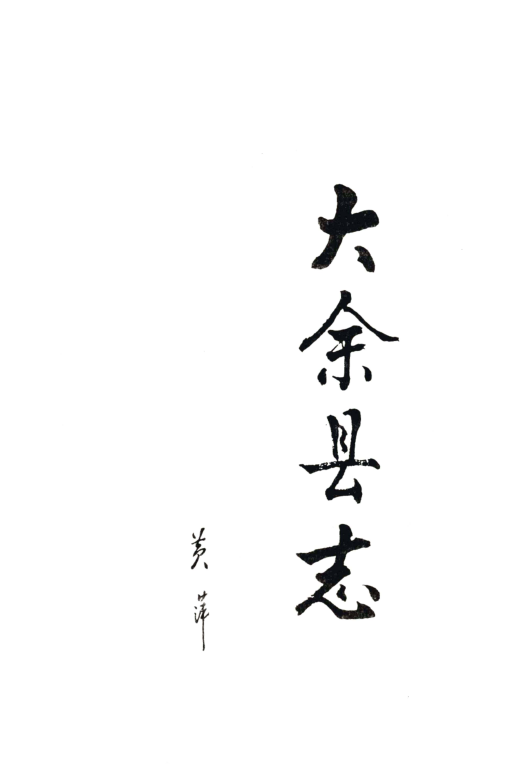 大余县志
黄萍